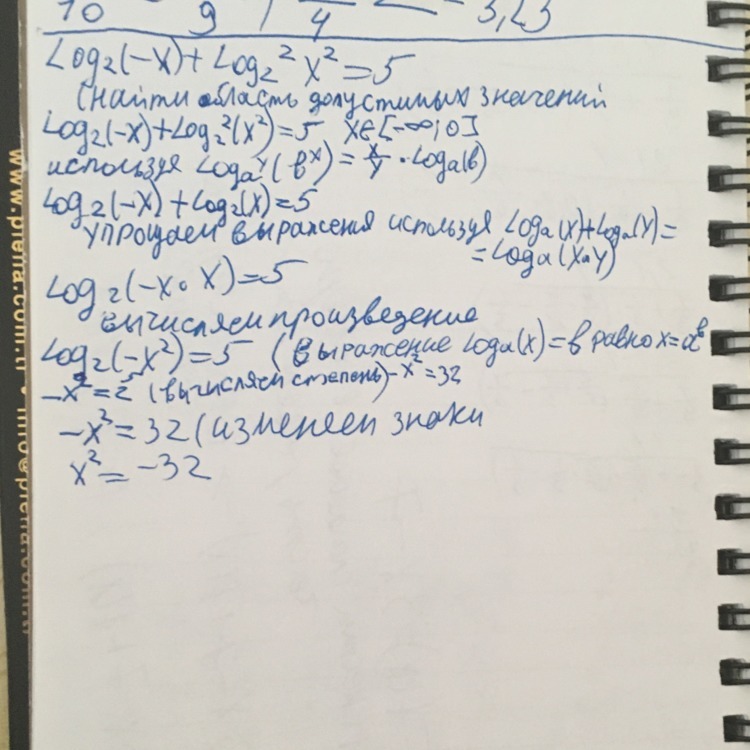 10 9 4 3,23
Log₂(-x)+Log₂² x²=5
(найти область допустимых значений
Log₂(-x)+Log₂²(x²)=5 x∈[-∞;0]
используя Logₐʸ(вˣ)=x/y·Logₐ(в)
Log₂(-x)+Log₂(x)=5
упрощаем выражения используя Logₐ(x)+Logₐ(y)=
=Logₐ(x·y)
Log₂(-x·x)=5
вычисляем произведение
Log₂(-x²)=5 (выражение Logₐ(x)=в равно x=aᵇ
-x²=2⁵ (вычисляем степень)-x²=32
-x²=32 (изменяем знаки
x²=-32
www.plena.com.tr • info@plena.com.tr